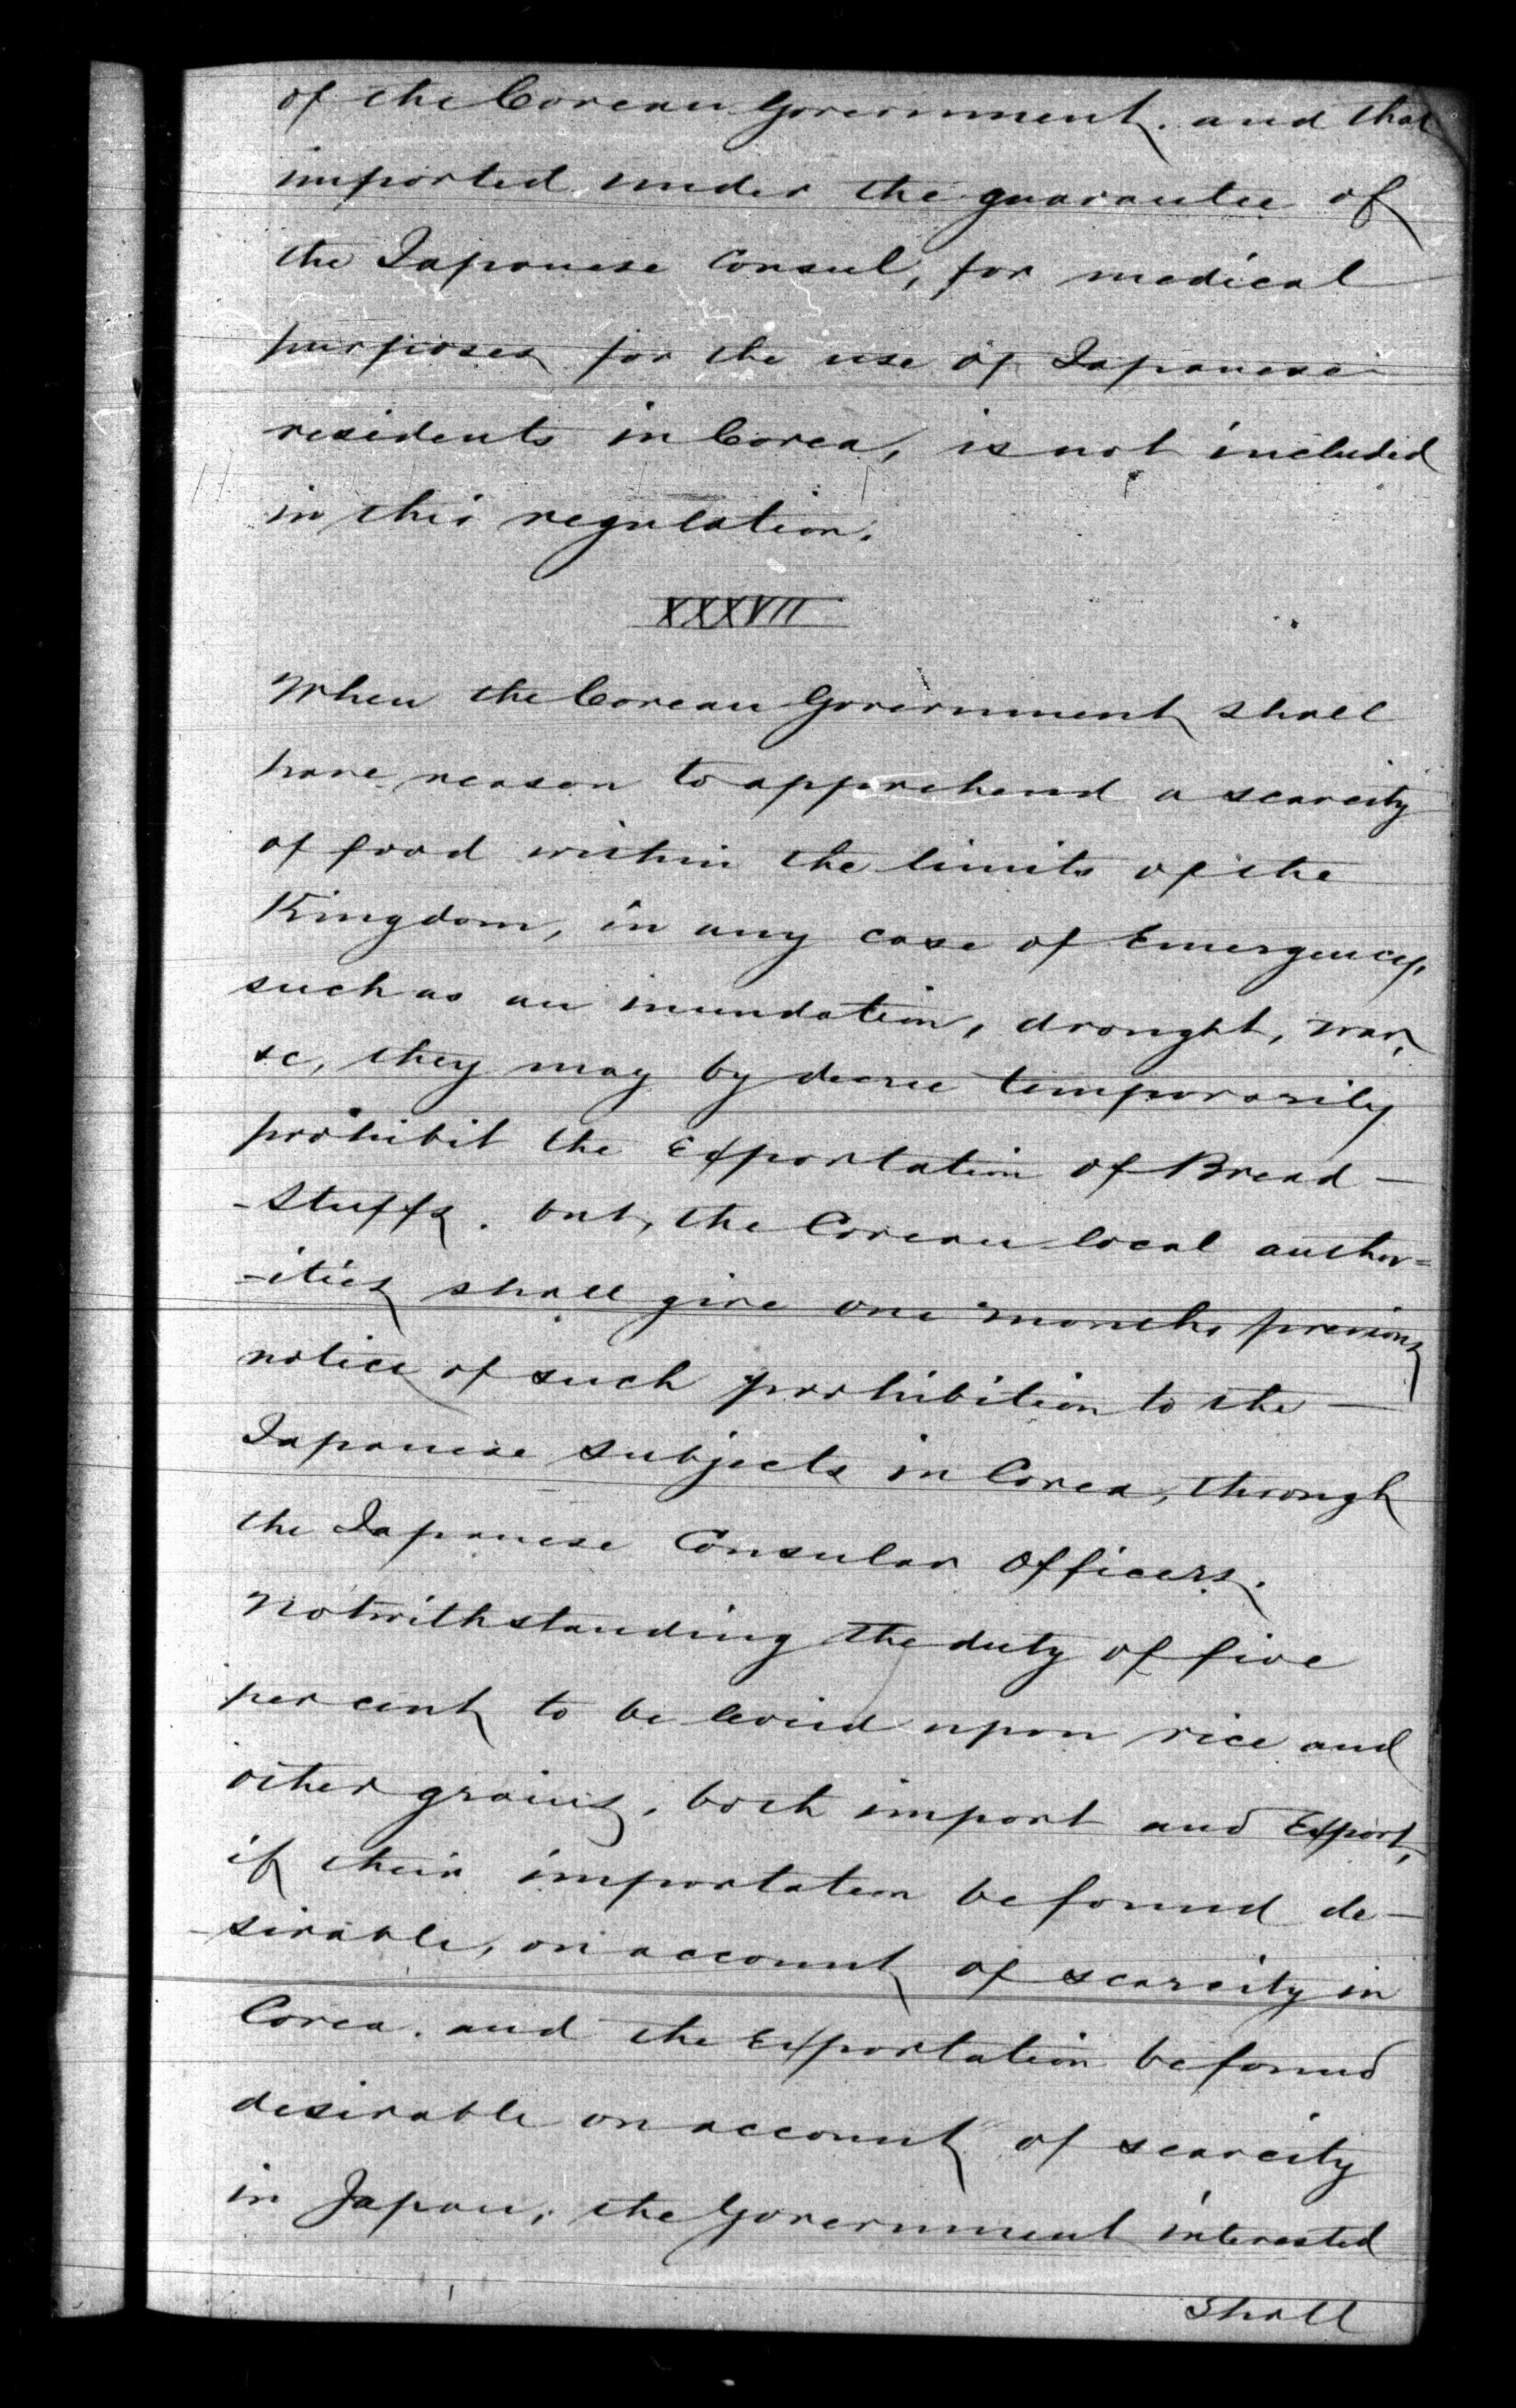 of the Corean Government. and that
imported under the guarantee of
the Japanese Consul, for medical
purposes for the use of Japanese
residents in Corea, is not included
in this regulation.
XXXVII
When the Corean Government shall
have reason to apprehend a scarcity
of food within the limits of the
Kingdom, in any case of Emergency,
such as an inundation, drought, war,
&c, they may by decree temporarily
prohibit the Exportation of Bread-
-stuffs. but, the Corean local author=
-ities shall give one months previous
notice of such prohibition to the —
Japanese subjects in Corea, through
the Japanese Consular Officers.
Notwithstanding the duty of five
per cent to be levied upon rice and
other grains, both import and Export,
if their importation be found de-
-sirable, on account of scarcity in
Corea. and the Exportation be found
desirable on account of scarcity
in Japan, the Government interested
shall